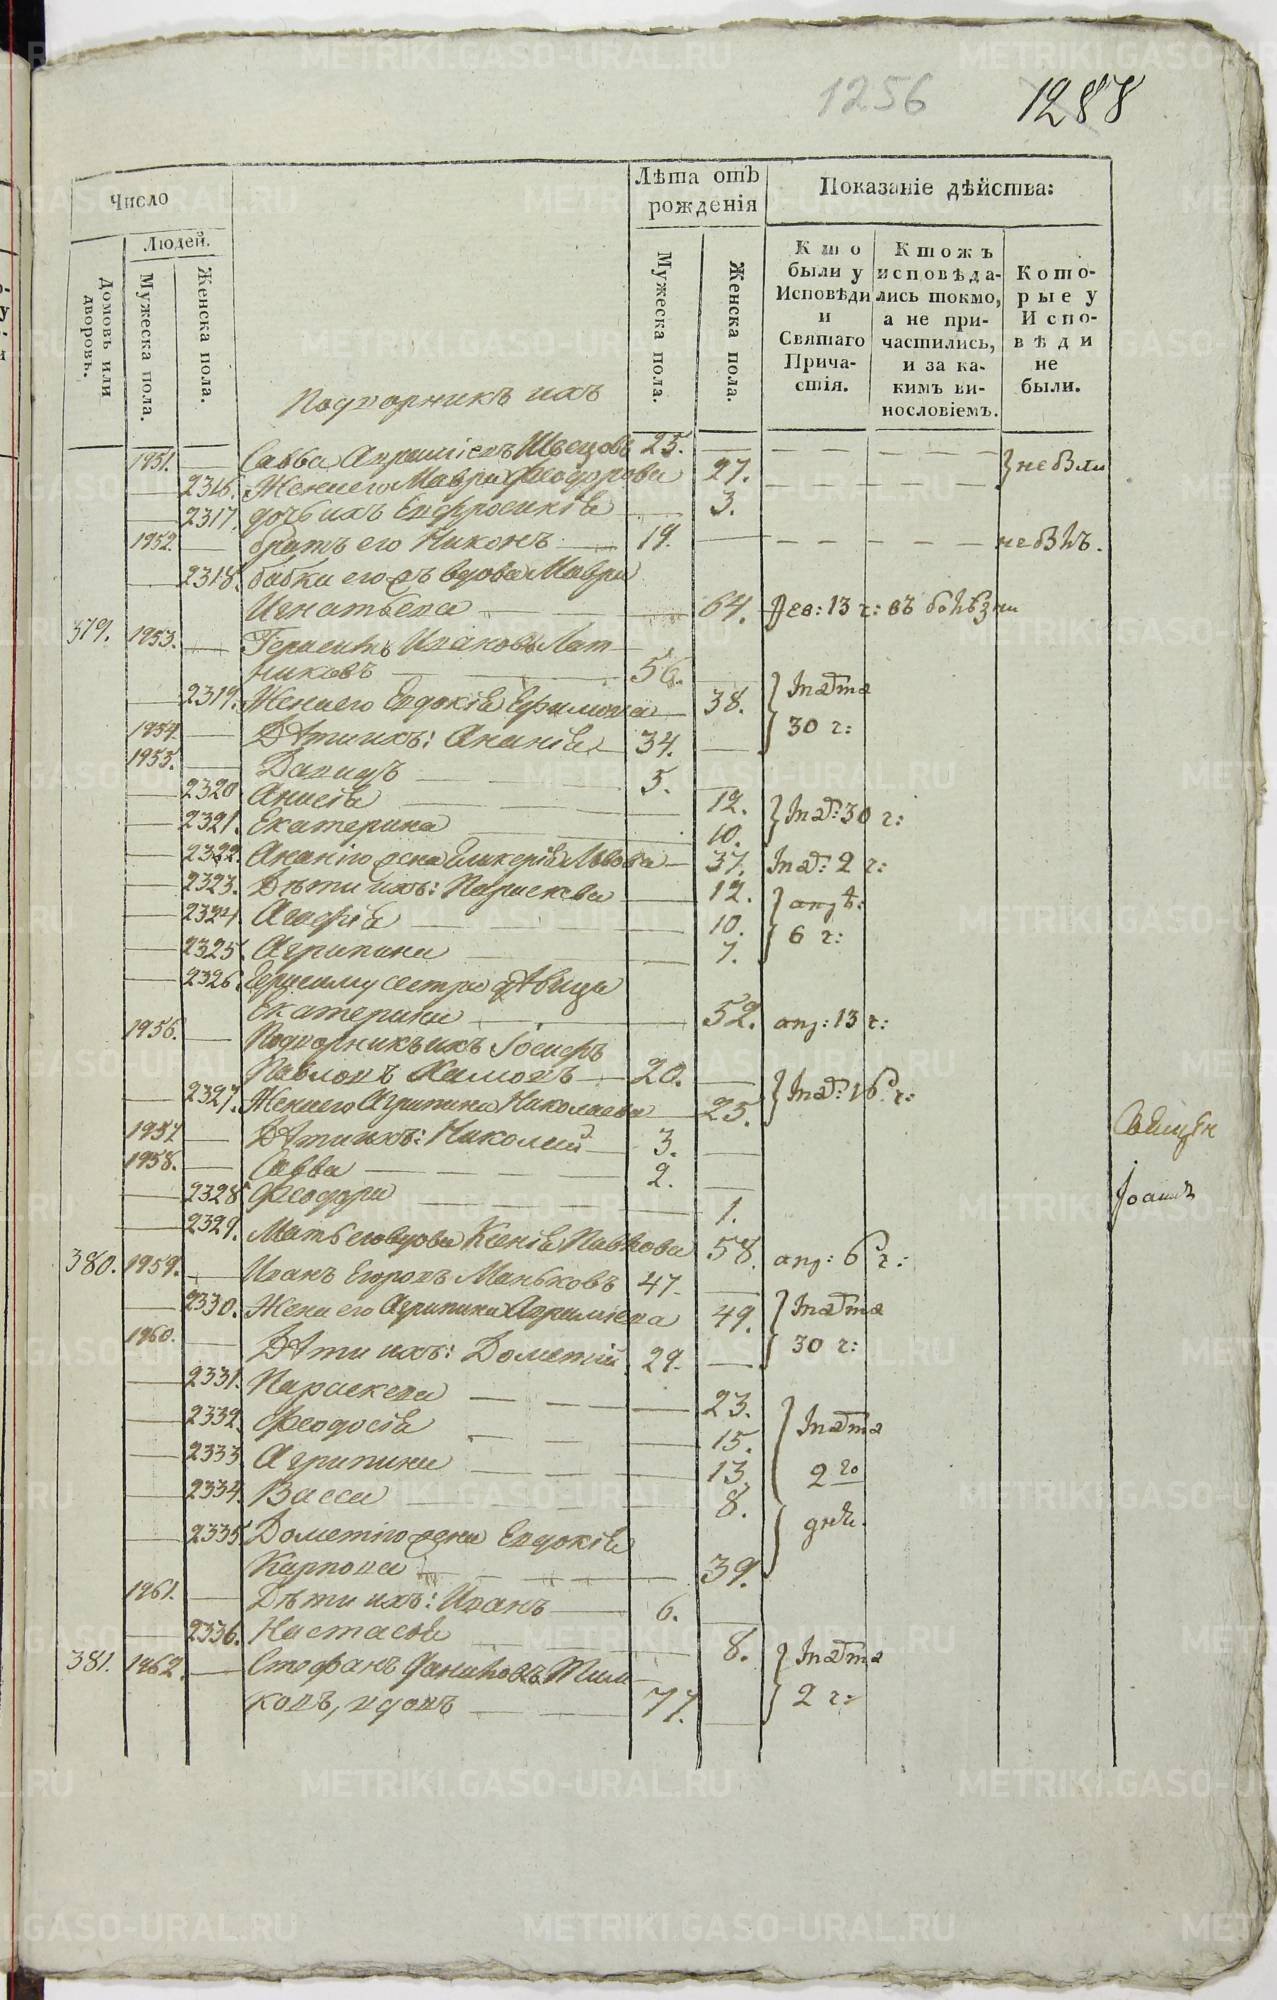 1256 1288
Число
Людей.
Домовъ или дворовъ.
Мужеска пола.
Женска пола.
Лѣта отъ рожденія
Мужеска пола.
Женска пола.
Показаніе дѣйства:
Кто были у Исповѣди и Святаго Причастія.
Ктожъ исповѣдались токмо, а не причастились, и за какимъ винословіемъ.
Которые у Исповѣди не были.
Подворникъ ихъ
1951. Савва Авраміевъ Швецовъ 25. не были
2316. Жена его Мавра Феодорова 27.
2317. дочь ихъ Евфросинія 3.
1952. братъ его Никонъ 19. не былъ.
2318. бабка его вдова Мавра
Игнатьева 64. Фев: 13 ч: въ болѣзни
379. 1953. Герасимъ Ивановъ Лат-
никовъ 56.
2319. Жена его Евдокія Ефимова 38. Марта 30 ч:
1954. Дѣти ихъ: Ананія 34.
1955. Давидъ 5.
2320 Анисія 12. Мар: 30 ч:
2321. Екатерина 10.
2322. Ананіи жена Гликерія Львова 37. Мар: 2 ч:
2323. Дѣти ихъ: Параскева 12. апрѣ:
2324. Агафія 10. 6 ч:
2325. Агрипина 7.
2326. Герасиму сестра дѣвица
Екатерина 52. апр: 13 ч:
1956. Подворникъ ихъ Іосифъ
Павловъ Хамовъ 20.
2327. Жена его Агрипина Николаева 25. Мар: 16 ч:
1957 Дѣти ихъ: Николай 3.
1958. Савва 2.
2328 Феодора 1.
2329. Мать его вдова Ксенія Павлова 58. апр: 6 ч:
380. 1959. Иванъ Егоровъ Маньковъ 47.
2330. Жена его Агрипина Авраміева 49. Марта
1960. Дѣти ихъ: Дометій 29. 30 ч:
2331. Параскева 23.
2332. Феодосія 15. Марта
2333 Агрипина 13. 2го
2334. Васса 8. дня.
2335 Дометію жена Евдокія
Карпова 39.
1961. Дѣти ихъ: Иванъ 6.
2336. Настасія 8.
381. 1962. Стефанъ Даниловъ Тим-
ковъ, вдовъ 77. Марта 2 ч:
Священ
Іоаннъ
METRIKI.GASO-URAL.RU